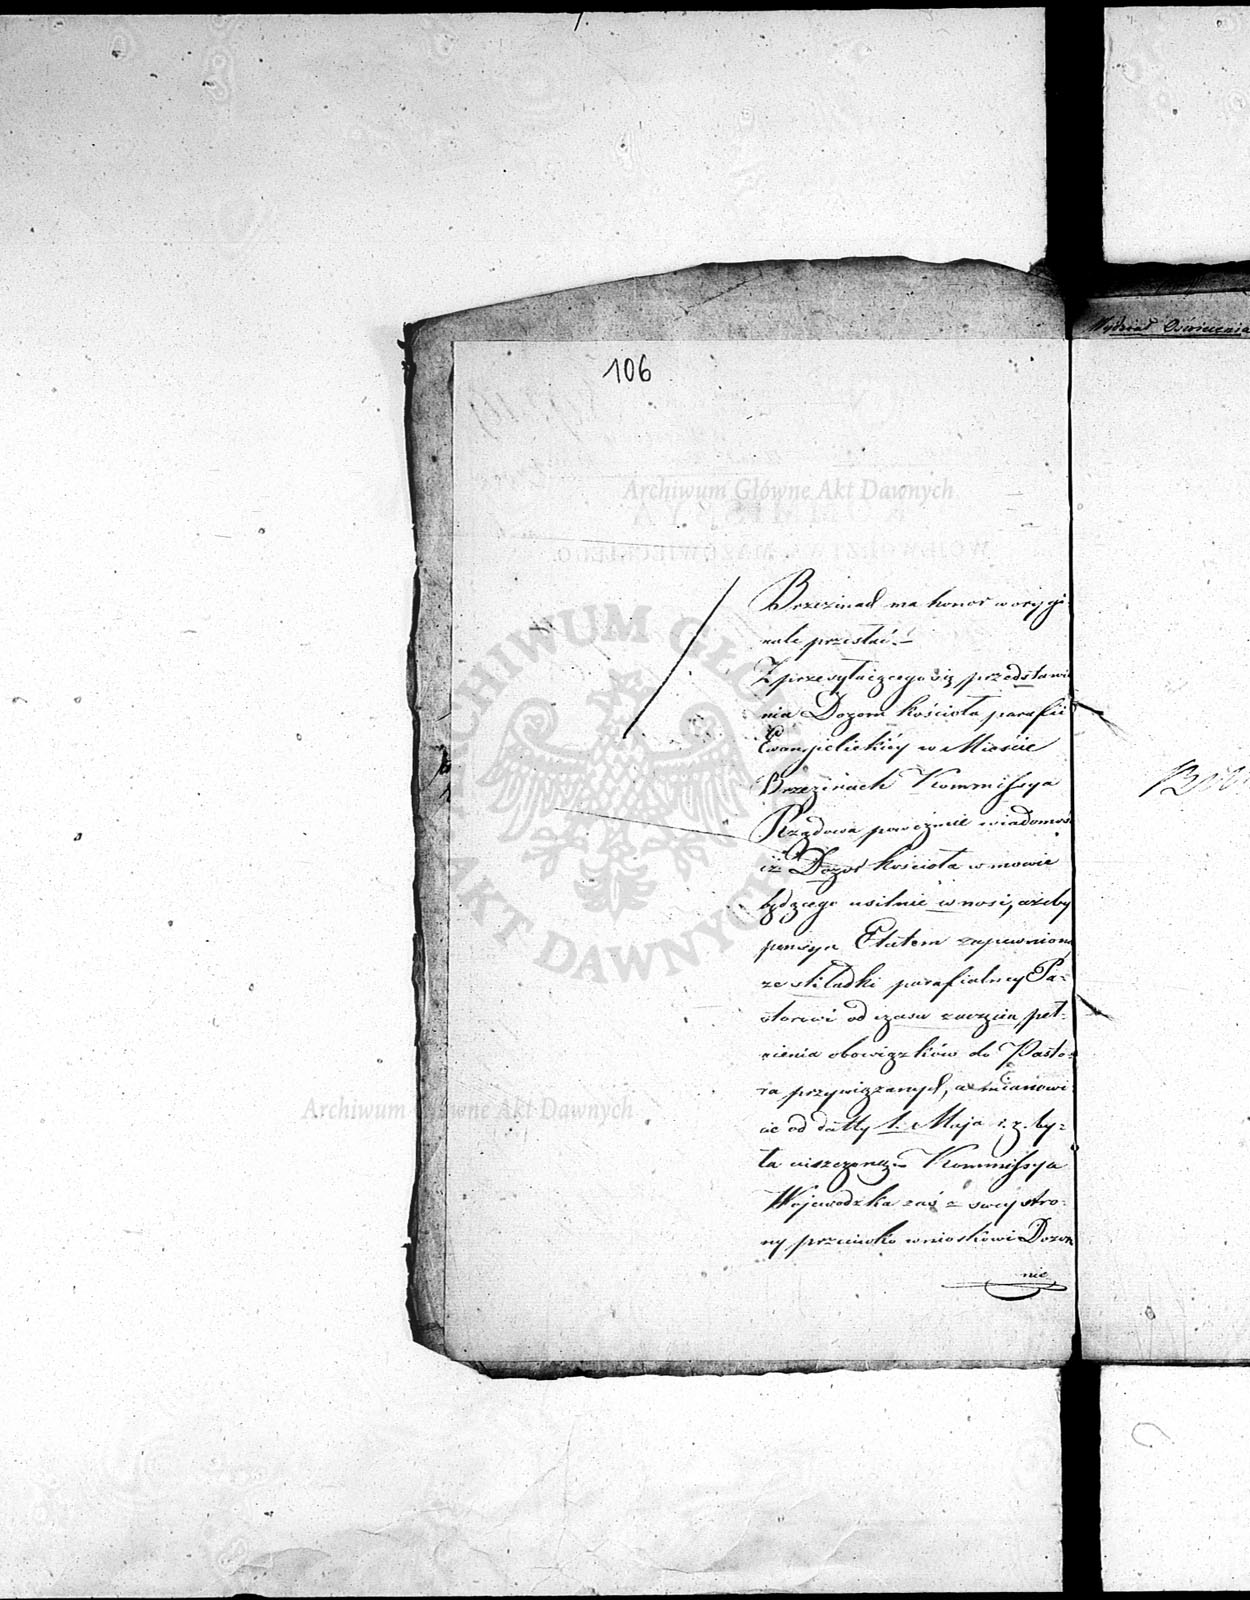 106
Wydział Oświecenia
Archiwum Główne Akt Dawnych
Brzezinach ma honor w orygi-
nale przesłać.
Z przesyłaiącego się przedstawie
nia Dozoru kościoła parafii
Ewangielickiéy w Mieście
Brzezinach Kommissya
Rządowa poweźmie wiadomość
iż Dozór kościoła w mowie
będącego usilnie wnosi, ażeby
pensya Etatem zapewniona
ze składki parafialney Pa-
storowi od czasu zaczęcia peł-
nienia obowiązków do Pasto-
ra przywiązanych, a mianowi-
cie od datty 1. Maja r. z. by-
ła uiszczoną. Kommissya
Woiewodzka zaś z swey stro-
ny przeciwko wnioskowi Dozoru
nic
ARCHIWUM GŁÓWNE AKT DAWNYCH
Archiwum Główne Akt Dawnych